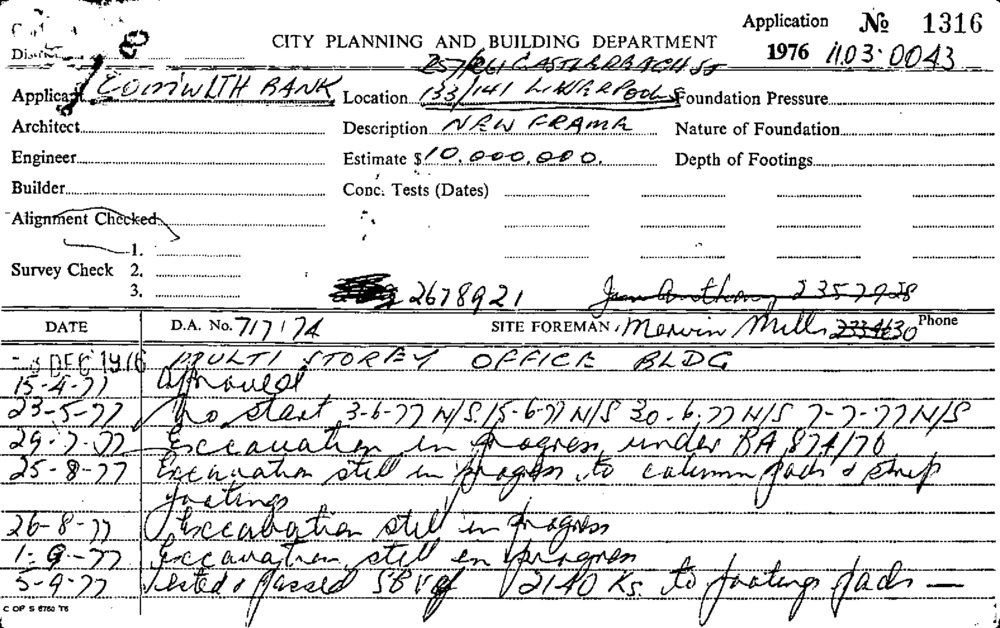 Application № 1316
CITY PLANNING AND BUILDING DEPARTMENT 1976 11.03.0043
257/261 CASTLEREAGH ST
Applicant COMWLTH BANK Location 133/141 LIVERPOOL S Foundation Pressure
Architect Description NEW FRAME Nature of Foundation
Engineer Estimate $10.000.000. Depth of Footings
Builder Conc. Tests (Dates)
Alignment Checked
1.
Survey Check 2.
3.
2678921 Anthony 2357928
DATE D.A. No. 717174 SITE FOREMAN Mervin Mills Phone
DEC 1976 MULTI STOREY OFFICE BLDG
15-4-77 Approved
23-5-77 No start 3-6-77 N/S 15-6-77 N/S 30.6.77 N/S 7-7-77 N/S
29-7-77 Excavation in progress under BA 874/76
25-8-77 Excavation still in progress, to column pads & strip
footings
26-8-77 Excavation still in progress
1-9-77 Excavation still in progress
5-9-77 Tested & passed SBV of 2140 Ks. to footings pads —
C OF S 6760 76